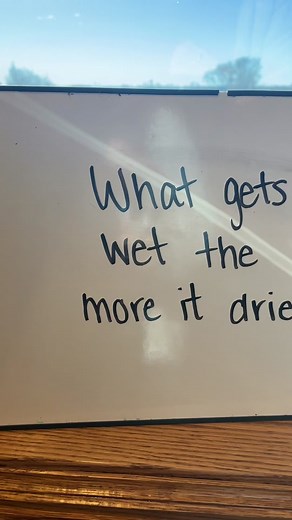 What gets
wet the
more it drie